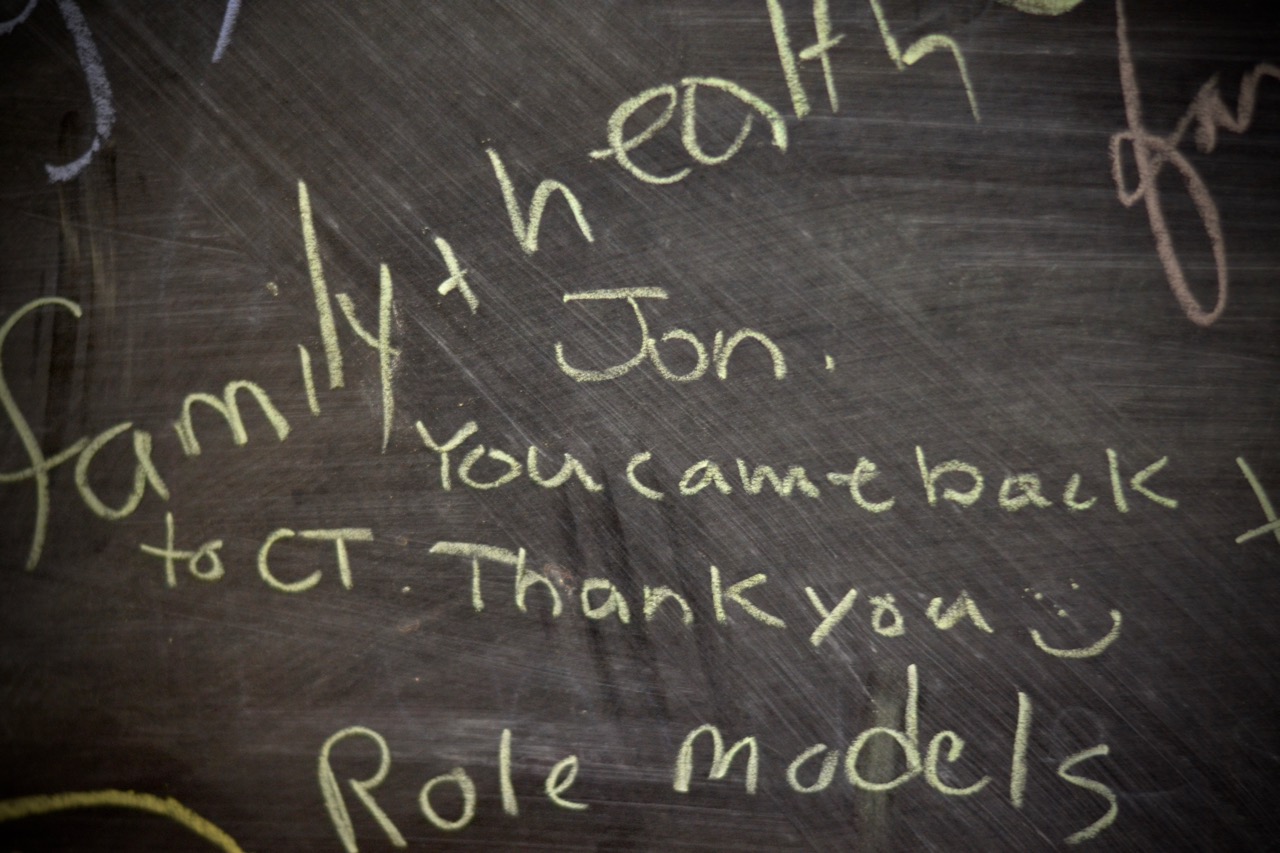 family + health
Jon.
You came back
to CT. Thank you :)
Role models